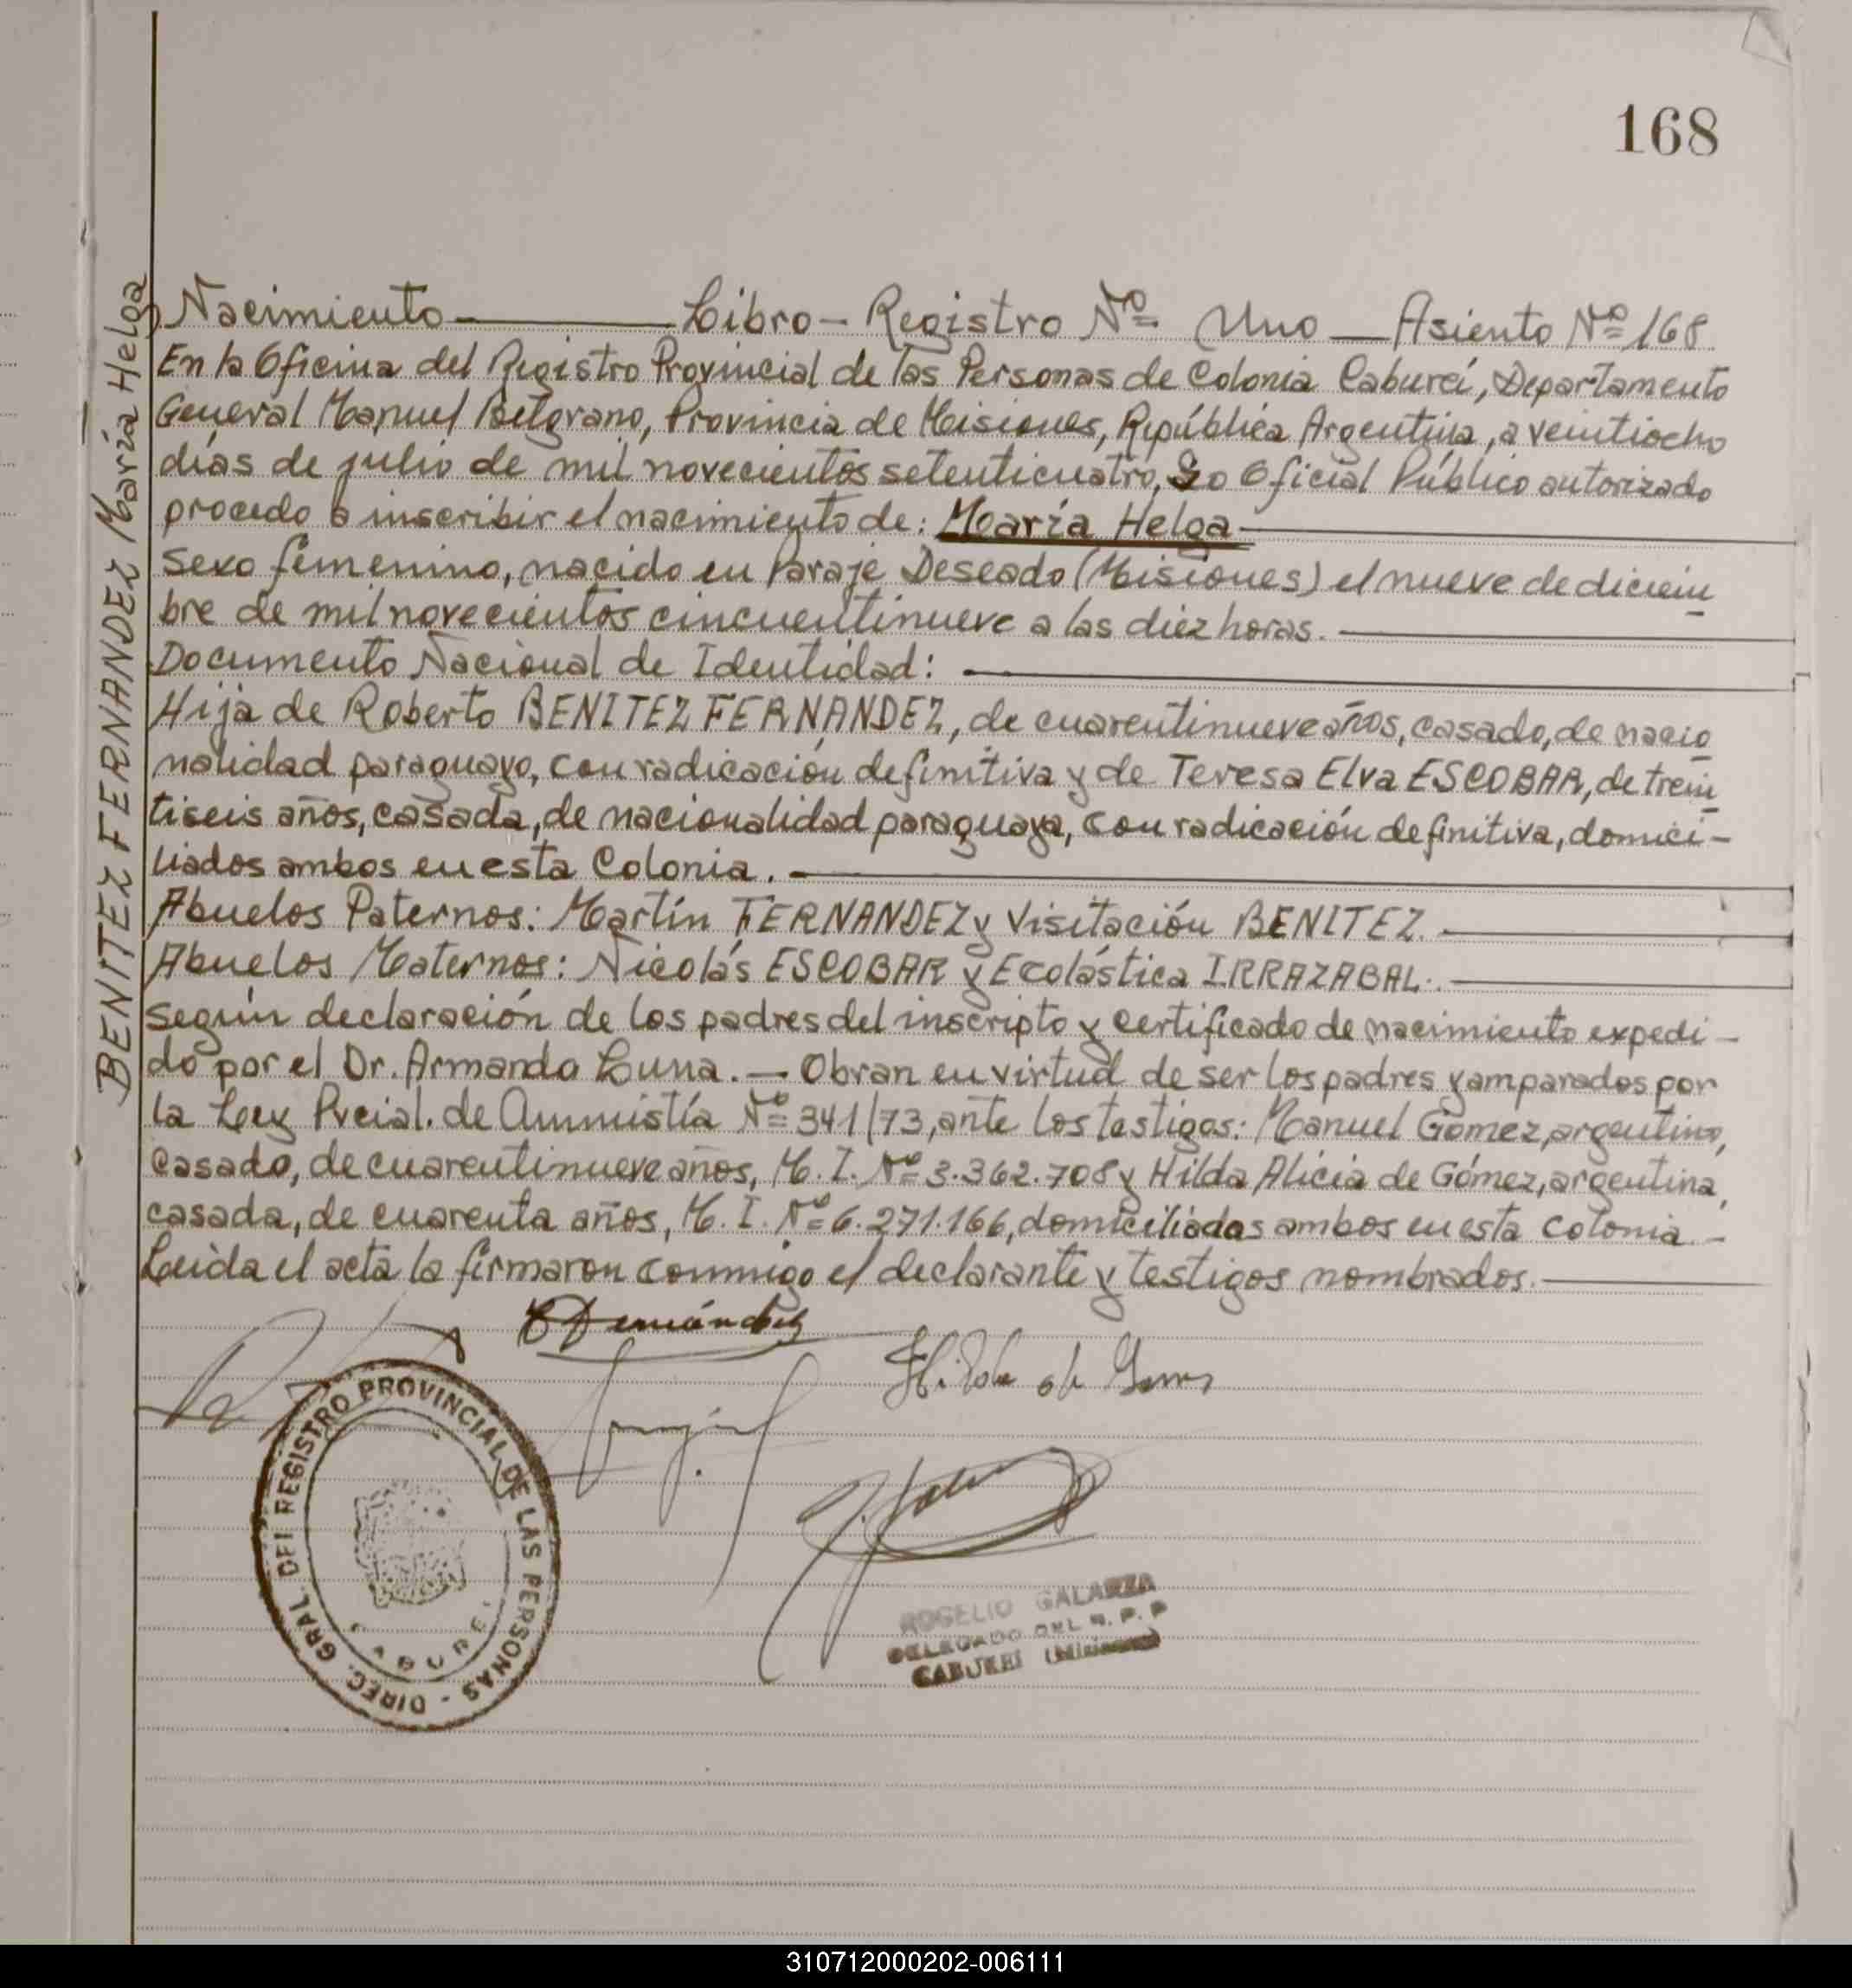 168
BENITEZ FERNANDEZ María Helga
Nacimiento Libro - Registro Nº Uno Asiento Nº 168
En la Oficina del Registro Provincial de las Personas de Colonia Caburei, Departamento
General Manuel Belgrano, Provincia de Misiones, República Argentina, a veintiocho
días de julio de mil novecientos setenticuatro, Yo Oficial Público autorizado
procedo a inscribir el nacimiento de: María Helga
Sexo femenino, nacido en Paraje Deseado (Misiones) el nueve de diciem
bre de mil novecientos cincuentinueve a las diez horas.
Documento Nacional de Identidad:
Hija de Roberto BENITEZ FERNANDEZ, de cuarentinueve años, casado, de nacio
nalidad paraguayo, con radicación definitiva y de Teresa Elva ESCOBAR, de trein
tiseis años, casada, de nacionalidad paraguaya, con radicación definitiva, domici-
liados ambos en esta Colonia.
Abuelos Paternos: Martín FERNANDEZ y Visitación BENITEZ.
Abuelos Maternos: Nicolás ESCOBAR y Ecolástica IRRAZABAL.
Según declaración de los padres del inscripto y certificado de nacimiento expedi-
do por el Dr. Armando Luna. - Obran en virtud de ser los padres y amparados por
la Ley Pvcial. de Ammistía Nº 341/73, ante los testigos: Manuel Gómez, argentino,
casado, de cuarentinueve años, M. I. Nº 3.362.708 y Hilda Alicia de Gómez, argentina,
casada, de cuarenta años, M. I. Nº 6.271.166, domiciliados ambos en esta Colonia.-
Leida el acta la firmaron conmigo el declarante y testigos nombrados.
Hilda de
DIREC. GRAL. DEL REGISTRO PROVINCIAL DE LAS PERSONAS -
CABUREI
ROGELIO GALARZA
DELEGADO DEL R. P. P
CABUREI (Misiones)
310712000202-006111